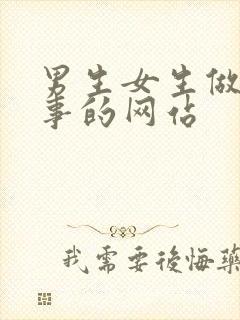 男生女生做
事的网占
我需要後悔藥